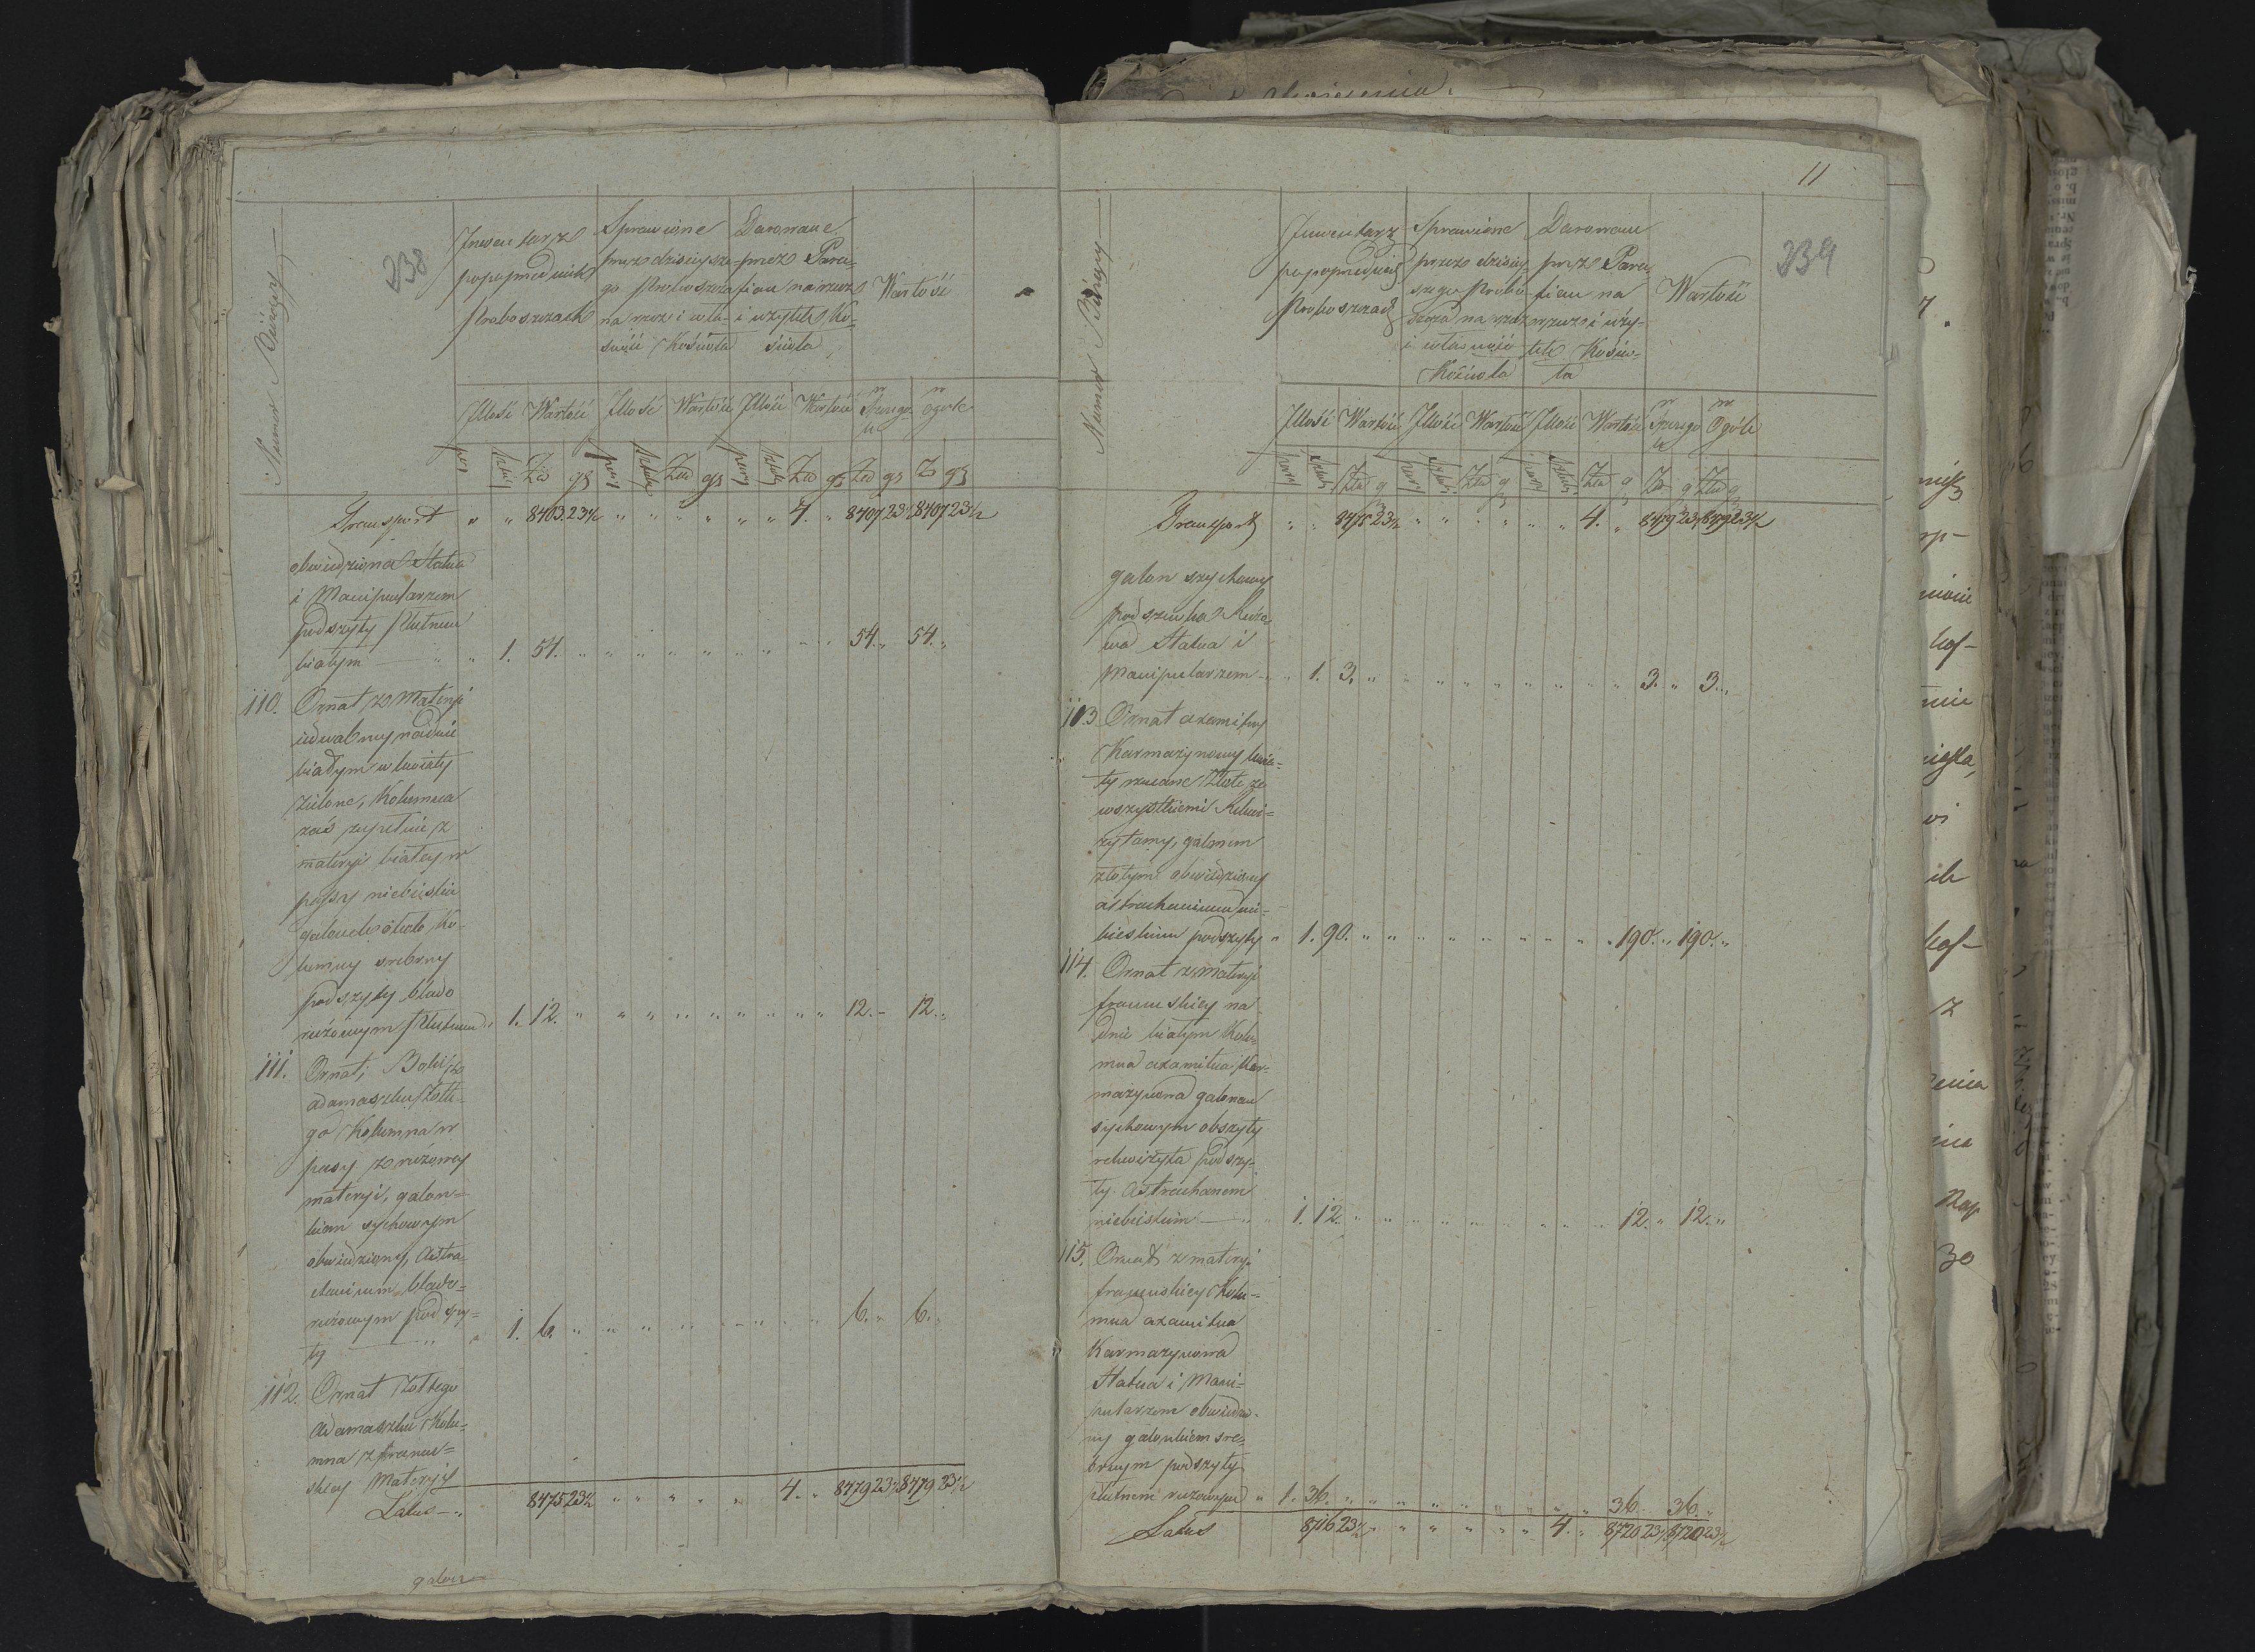 238
Numer Bieżący
Inwentarz
po poprzednik
Proboszczach
Sprawione
przez dzisieysze-
go Proboszcza
na rzecz i wła-
sność Kościoła
Darowane
przez Para-
fian na rzecz
i użytek Ko-
ścioła
Wartość
Illość Wartość Illość Wartość Illość Wartość w Szczegó- w Ogole
le
pary sztuk Złd gr pary sztuka Złd gr pary sztuka Złd gr Złd gr Zł gr
Transport " " 8403. 23½ " " " " " " 4. " 8407 23½ 8407 23½
obwiedziona Stułua
i Manipularzem
podszyty Płutnem
białym — " " 1. 54. " " " " " " " " " 54. " 54. "
110. Ornat z Materyi
iedwabney na dnie
białym w kwiaty
Zielone, Kolumna
zaś zupełnie z
materyi białey w
passy niebieskie
galonek około Ko-
lumny srebrny
podszyty blado
różowym Płutnem " 1. 12. " " " " " " " " " 12. - 12. "
111. Ornat, Boki z
adamaszku Żółte-
go Kolumna w
pasy z rużowey
materyi, galon-
kiem sychowym
obwiedziony, Astra-
chanium blado-
różowym podszy-
ty — " " 1. 6. " " " " " " " " " 6. " 6. "
112. Ornat Żołtego
Adamaszku Kolu-
mna z Francu-
skiey Materyi
Latus — " 8475 23½ " " " " " " 4. " 8479 23½ 8479 23½
galon
11
239
Numer Bieżący
Inwentarz
po poprzednich
Proboszczach
Sprawione
przez dzisiey-
szego Probo-
szcza na rzecz
i własność
Kościoła
Darowane
przez Para-
fian na
rzecz i uży-
tek Kościo-
ła
Wartość
Illość Wartość Illość Wartość Illość Wartość w Szczegó w Ogóle
le
pary sztuk Złd gr pary sztuk Złd gr pary sztuk Złd gr Zł gr Złd gr
Transport " " 8475 23½ " " " " " " 4. " 8479 23½ 8479 23½
galon szychowy
podszewka Rużo-
wa Stałua i
Manipularzem — " " 1. 3. " " " " " " " " " 3. " 3. "
113 Ornat axamitny
Karmazynowy kwia-
ty rzucane Złote ze
wszystkiemi Rekwi-
zytamy, galonem
złotym obwiedziony
astrachanium nie-
bieskim podszyty " 1. 90. " " " " " " " " " 190. " 190. "
114. Ornat z Materyi
francuskiey na
dnie białym Kolu-
mna axamitna Kar-
mazynowa galonem
sychowym obszyty
rekwizyta podszy-
ty Astrachanem
niebieskim — " " 1. 12. " " " " " " " " " 12. " 12. "
115. Ornat z materyi
francuskiey Kolu-
mna axamitna
Karmazynowa
Stałua i Mani-
pularzem obwiedzio-
ny galonkiem sre-
brnym podszyty
płutnem rużowym " 1. 36. " " " " " " " " " 36. 36. "
Latus 8716 23½ " " " " " " 4. " 8720 23½ 8720 23½